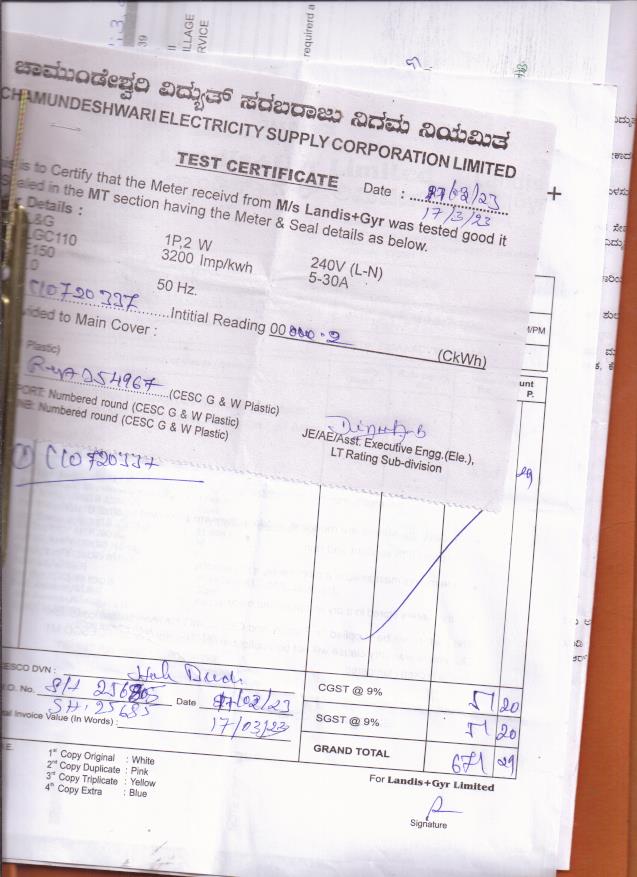 39
LLAGE
RVICE
requirerd a
ಚಾಮುಂಡೇಶ್ವರಿ ವಿದ್ಯುತ್ ಸರಬರಾಜು ನಿಗಮ ನಿಯಮಿತ
CHAMUNDESHWARI ELECTRICITY SUPPLY CORPORATION LIMITED
TEST CERTIFICATE
Date : 17/3/23
is to Certify that the Meter receivd from M/s Landis+Gyr was tested good it
in the MT section having the Meter & Seal details as below.
Details :
L&G
LGC110 1P,2 W 240V (L-N)
E150 3200 Imp/kwh 5-30A
50 Hz.
C10720337 Intitial Reading 00 000.2 (CkWh)
ided to Main Cover :
Plastic)
D54967 (CESC G & W Plastic)
PORT: Numbered round (CESC G & W Plastic)
NB: Numbered round (CESC G & W Plastic)
JE/AE/Asst. Executive Engg.(Ele.),
LT Rating Sub-division
① C10720337
M/PM
unt
P.
29
CESCO DVN :
.O. No. SH 25685 Date 17/02/23
SH: 25685 17/03/23
al Invoice Value (In Words) :
CGST @ 9% 51 20
SGST @ 9% 51 20
GRAND TOTAL 671 29
1st Copy Original : White
2nd Copy Duplicate : Pink
3rd Copy Triplicate : Yellow
4th Copy Extra : Blue
For Landis+Gyr Limited
Signature